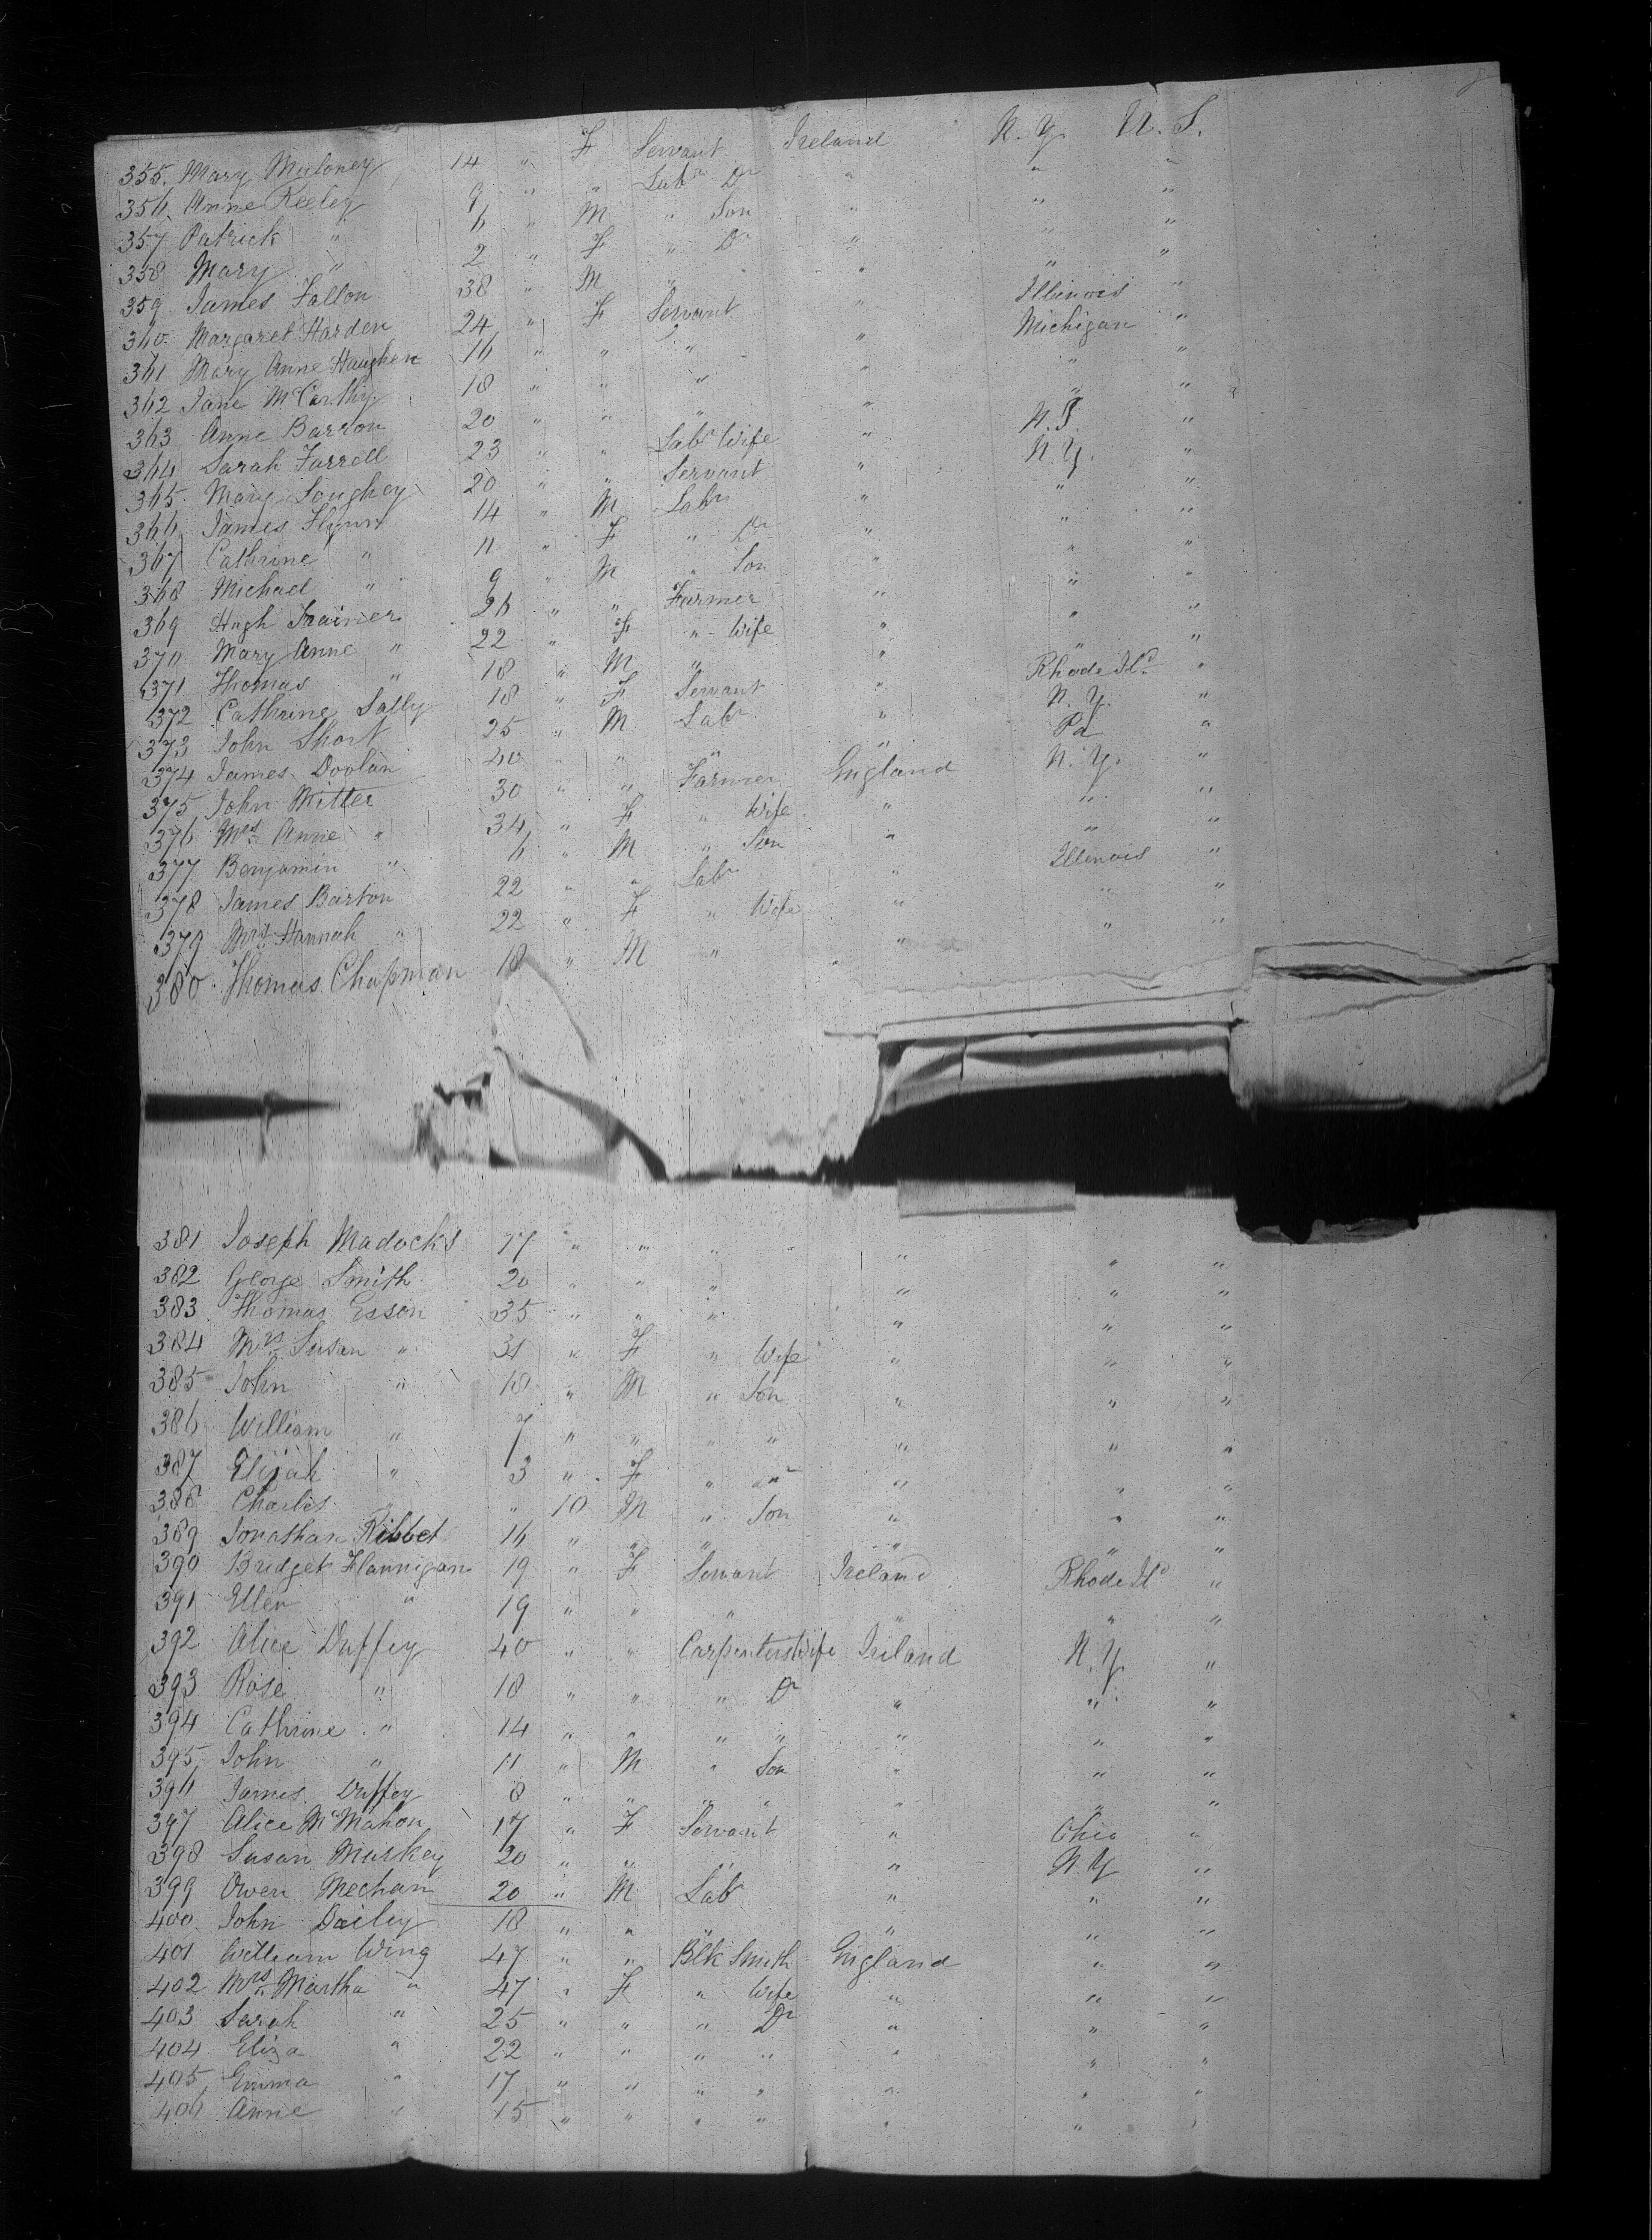 355. Mary Muloney 14 " F Servant Ireland N. Y. U. S.
356. Anne Reeley 9 " " Labr Dr " " "
357 Patrick " 6 " M " Son " " "
358 Mary " 2 " F " Dr " " "
359 James Fallon 38 " M " " " "
360 Margaret Harden 24 " F Servant " Illinois "
361 Mary Anne Haughen 16 " " " " Michigan "
362 Jane McCarthy 18 " " " " " "
363 Anne Barron 20 " " " " " "
364 Sarah Farrell 23 " " Labr Wife " N. J. "
365. Mary Loughey 20 " " Servant " N. Y. "
366 James Flynn 14 " M Labr " " "
367 Cathrine " 11 " F " Dr " " "
368 Michael " 9 " M " Son " " "
369 Hugh Trainer 26 " " Farmer " " "
370 Mary Anne " 22 " F " Wife " " "
371 Thomas " 18 " M " " " "
372 Cathrine Lally 18 " F Servant " Rhode Ild "
373 John Short 25 " M Labr " N. Y. "
374 James Doolan 40 " " " " Pa "
375 John Mitter 30 " " Farmer England N. Y. "
376 Mrs Anne " 34 " F " Wife " " "
377 Benjamin " 6 " M " Son " " "
378 James Barton 22 " " Labr " Illenois "
379 Mrs Hannah " 22 " F " Wife " " "
380 Thomas Chapman 18 " M " " "
381 Joseph Madocks " " " " " "
382 George Smith 20 " " " " " "
383 Thomas Esson 35 " " " " " "
384 Mrs Susan " 31 " F " Wife " " "
385 John " 18 " M " Son " " "
386 William " 7 " " " " " " "
387 Elijah " 3 " F " " " "
388 Charles " 10 M " Son " " "
389 Jonathan Ribbet 16 " " " " " "
390 Bridget Flannigan 19 " F Servant Ireland Rhode Ild "
391 Ellen " 19 " " " " " "
392 Alice Duffey 40 " " Carpenters Wife Ireland N. Y. "
393 Rose " 18 " " " Dr " " "
394 Cathrine " 14 " " " " " " "
395 John " 11 " M " Son " " "
396 James Duffey 8 " " " " " " "
397 Alice McMahon 17 " F Servant " Ohio "
398 Susan Murkey 20 " " " " N. Y "
399 Owen Mechan 20 " M Labr " " "
400 John Dailey 18 " " " " " "
401 William Wing 47 " " Blk Smith England " "
402 Mrs Martha " 47 " F " Wife " " "
403 Sarah " 25 " " " Dr " " "
404 Eliza " 22 " " " " " " "
405 Emma " 17 " " " " " " "
406 Anne " 15 " " " " " " "